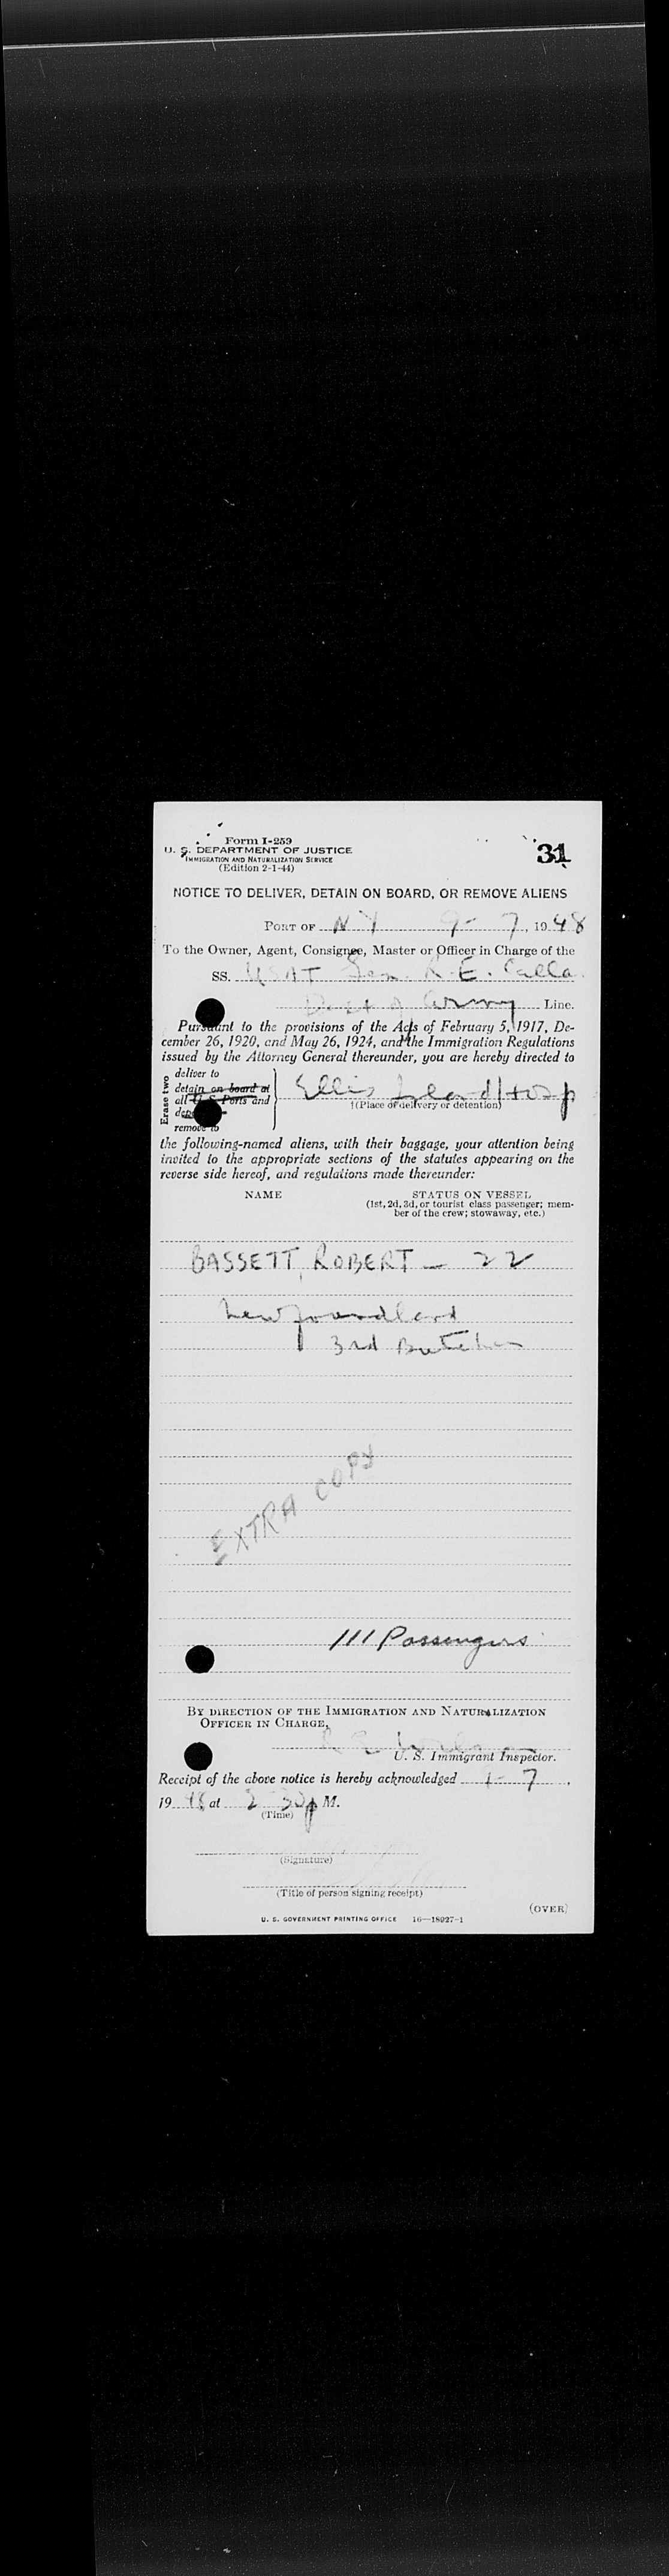 Form I-259
31
U. S. DEPARTMENT OF JUSTICE
IMMIGRATION AND NATURALIZATION SERVICE
(Edition 2-1-44)
NOTICE TO DELIVER, DETAIN ON BOARD, OR REMOVE ALIENS
PORT OF N Y 9- 7, 1948
To the Owner, Agent, Consignee, Master or Officer in Charge of the
SS. USAT Gen. R. E. Calla
Dept of Army Line.
Pursuant to the provisions of the Acts of February 5, 1917, De-
cember 26, 1920, and May 26, 1924, and the Immigration Regulations
issued by the Attorney General thereunder, you are hereby directed to
Erase two
deliver to
detain on board at
all U. S. Ports and
remove to
Ellis Island Hosp
†(Place of delivery or detention)
the following-named aliens, with their baggage, your attention being
invited to the appropriate sections of the statutes appearing on the
reverse side hereof, and regulations made thereunder:
NAME STATUS ON VESSEL
(1st, 2d, 3d, or tourist class passenger; mem-
ber of the crew; stowaway, etc.)
BASSETT, ROBERT - 22
Newfoundland
3rd Butcher
EXTRA COPY
111 Passengers
BY DIRECTION OF THE IMMIGRATION AND NATURALIZATION
OFFICER IN CHARGE,
U. S. Immigrant Inspector.
Receipt of the above notice is hereby acknowledged 7,
1948 at 2 30 p M.
(Time)
(Signature)
(Title of person signing receipt)
(OVER)
U. S. GOVERNMENT PRINTING OFFICE 16—18927-1